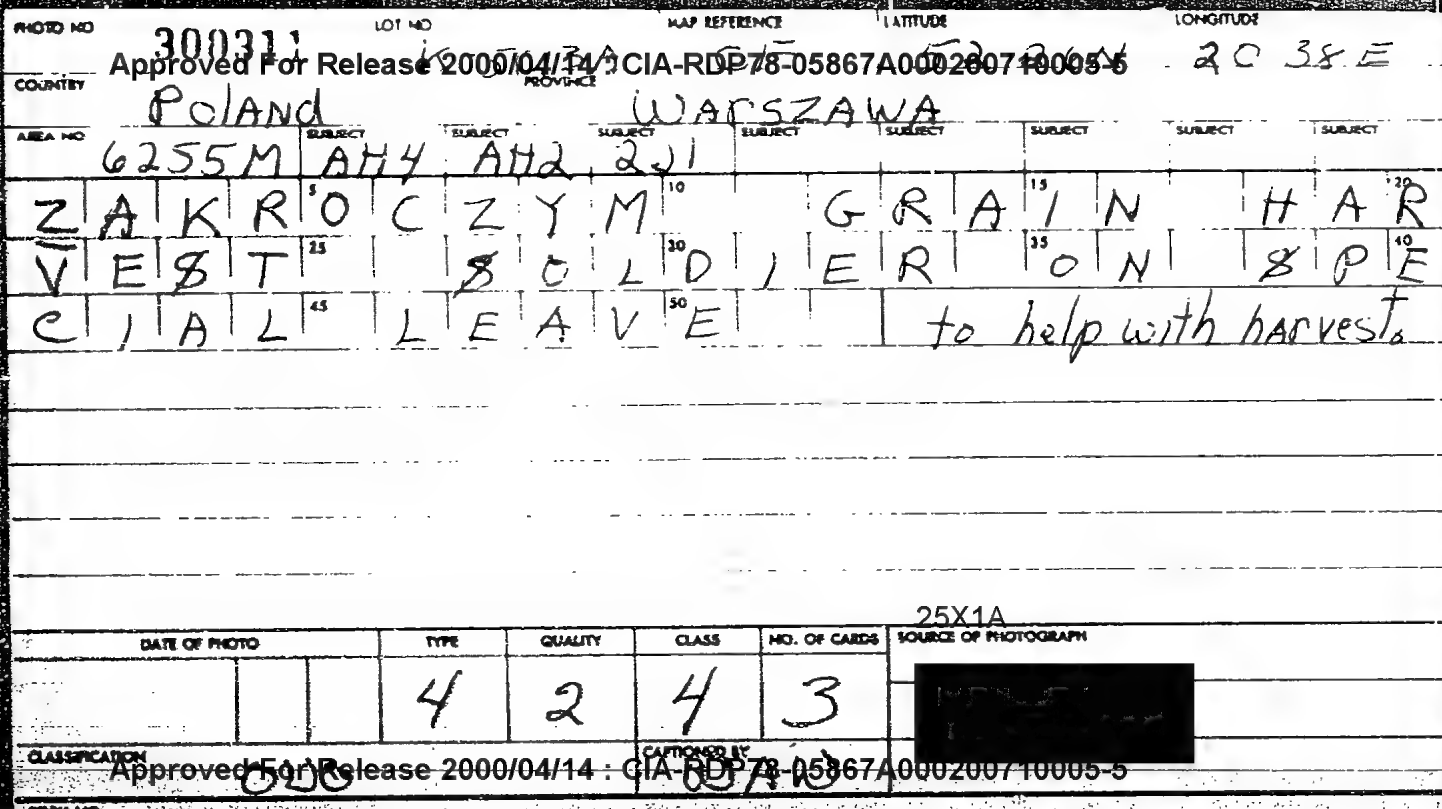 PHOTO NO LOT NO MAP REFERENCE LATITUDE LONGITUDE
300311 20 38 E
Approved For Release 2000/04/14 : CIA-RDP78-05867A000200710005-5
COUNTRY PROVINCE
Poland WARSZAWA
AREA NO SUBJECT SUBJECT SUBJECT SUBJECT SUBJECT SUBJECT SUBJECT SUBJECT
6255M AH4 AH2 2J1
5 10 15 20
ZAKROCZYM GRAIN HAR
25 30 35 40
VEST SOLDIER ON SPE
45 50
CIAL LEAVE to help with harvest.
25X1A
DATE OF PHOTO TYPE QUALITY CLASS NO. OF CARDS SOURCE OF PHOTOGRAPH
4 2 4 3
CLASSIFICATION CAPTIONED BY
Approved For Release 2000/04/14 : CIA-RDP78-05867A000200710005-5